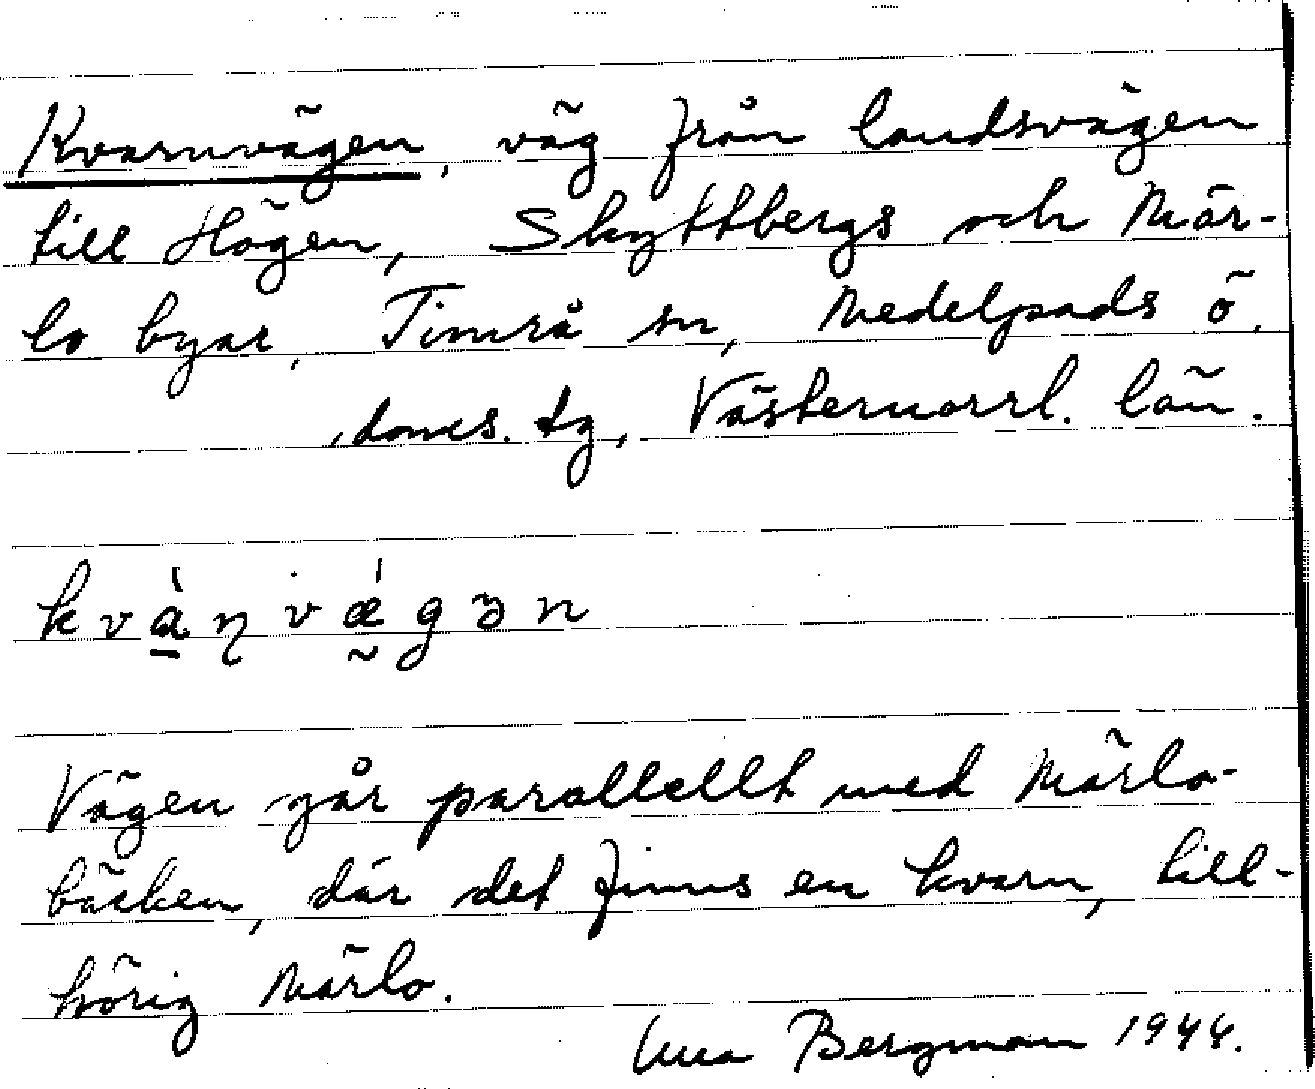 Kvarnvägen, väg från landsvägen
till Högen, Skyttbergs och Mär-
lo byar, Timrå sn, Medelpads ö.
doms. tg, Västernorrl. län.
kvàɳvǽgən
Vägen går parallellt med Märlo-
bäcken, där det finns en kvarn, till-
hörig Märlo.
Bergman 1944.